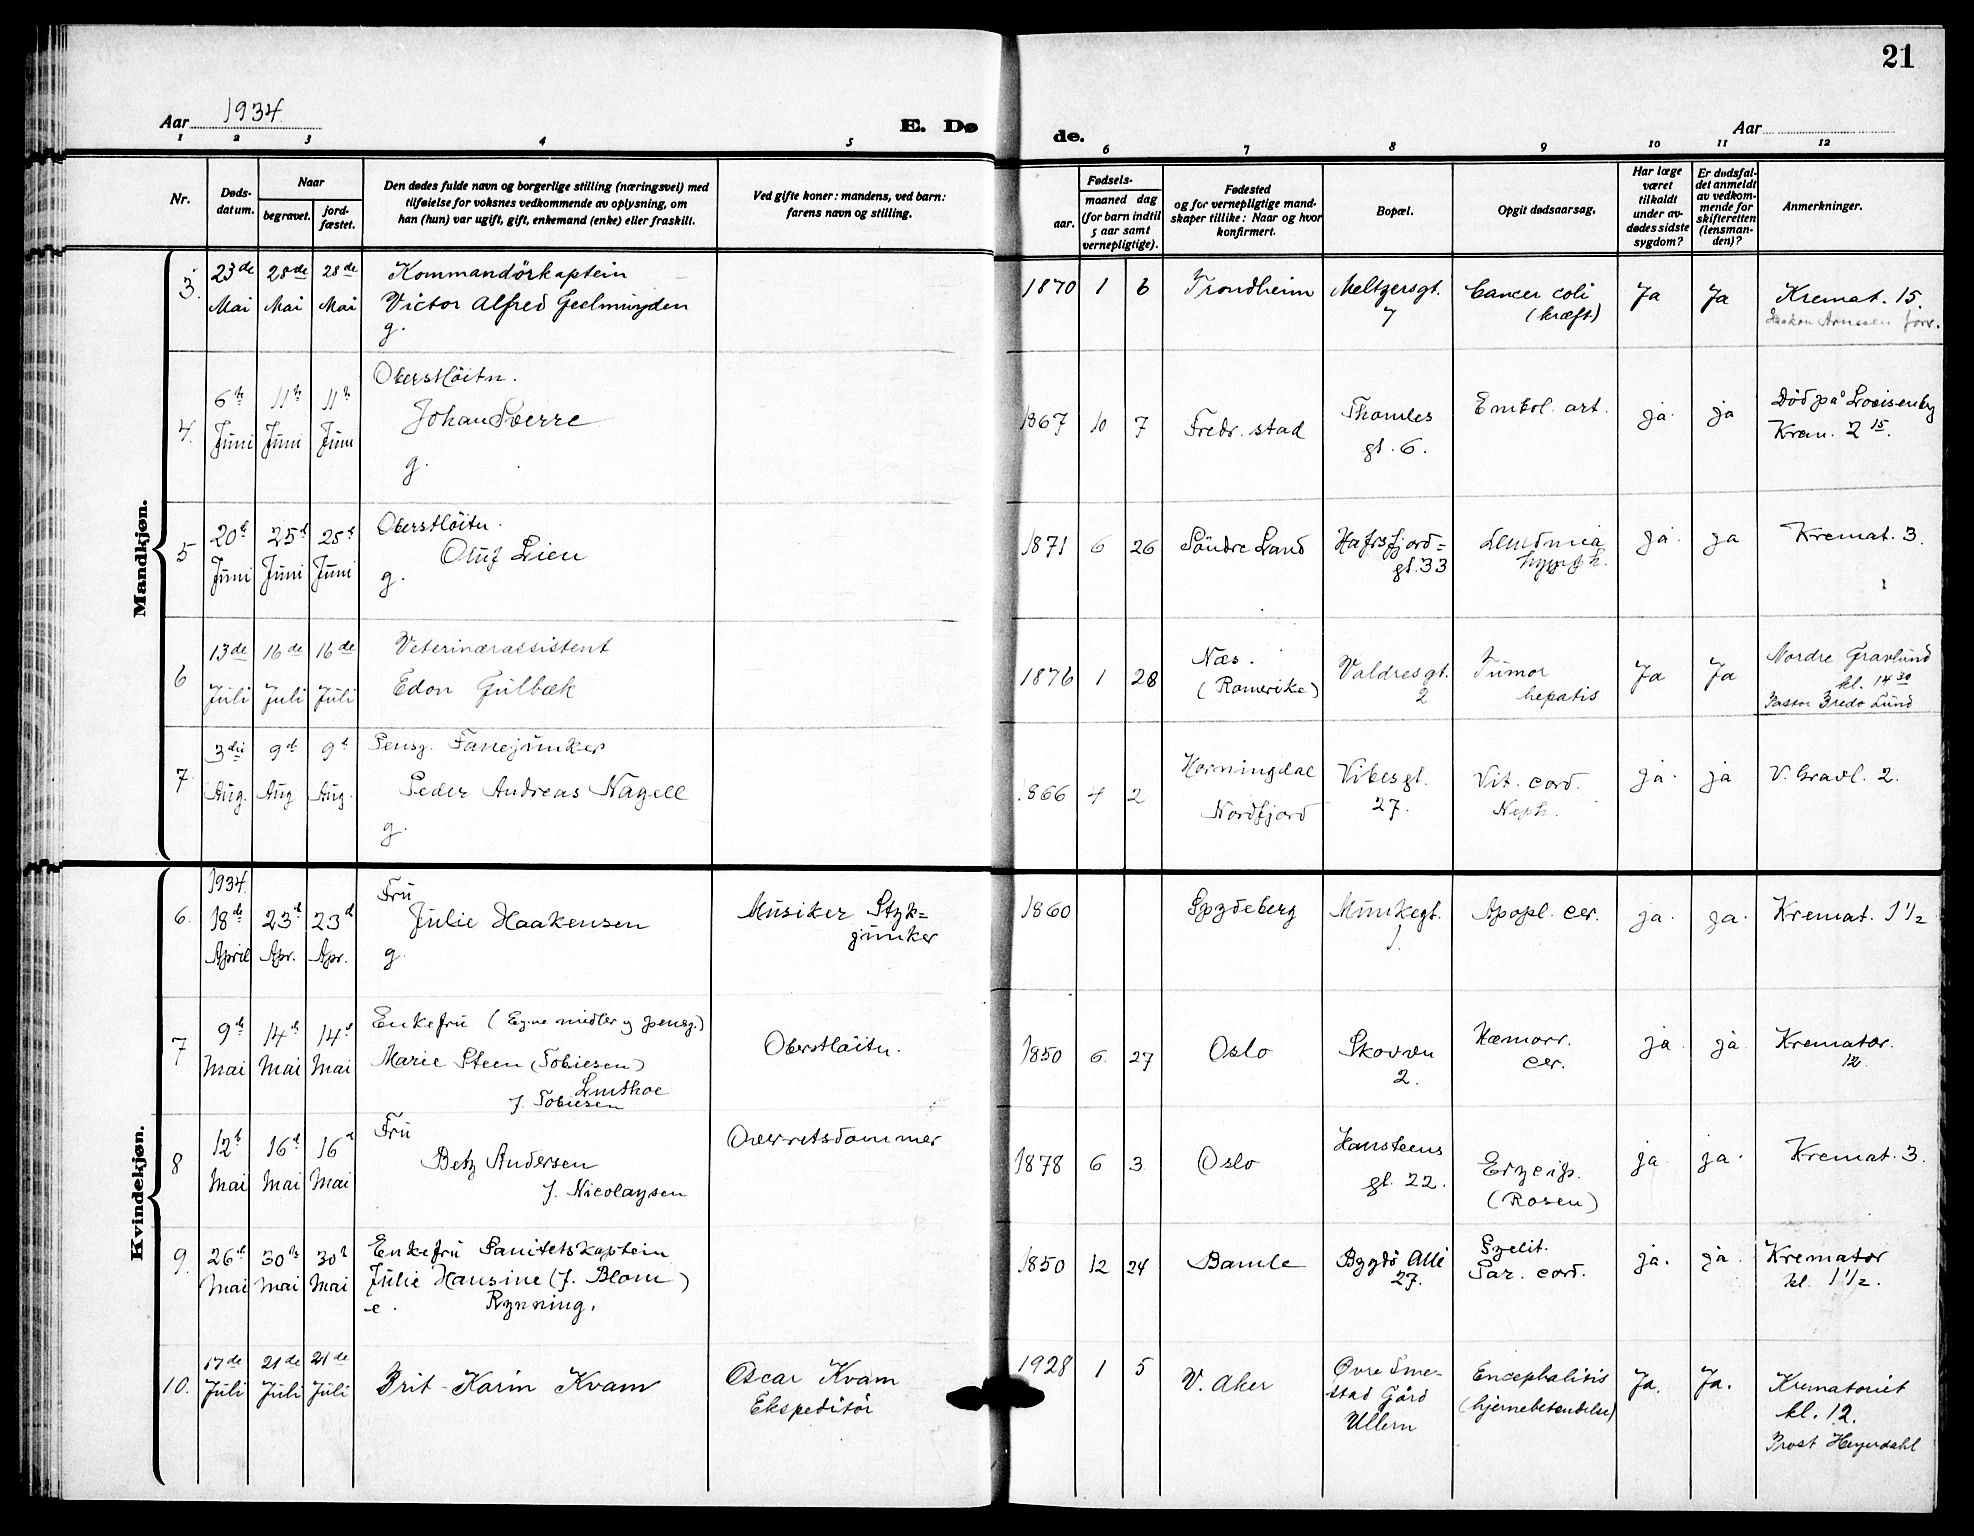 21
Aar 1934
E. Døde.
Aar
1 2 3 4 5 6 7 8 9 10 11 12
Nr.
Døds-
datum.
Naar
begravet.
jord-
fæstet.
Den dødes fulde navn og borgerlige stilling (næringsvei) med
tilføielse for voksnes vedkommende av oplysning, om
han (hun) var ugift, gift, enkemand (enke) eller fraskilt.
Ved gifte koner: mandens, ved barn:
farens navn og stilling.
Fødsels-
aar.
maaned dag
(for barn indtil
5 aar samt
vernepligtige).
Fødested
og for vernepligtige mand-
skaper tillike: Naar og hvor
konfirmert.
Bopæl.
Opgit dødsaarsag.
Har læge
været
tilkaldt
under av-
dødes sidste
sygdom?
Er dødsfal-
det anmeldt
av vedkom-
mende for
skifteretten
(lensman-
den)?
Anmerkninger.
Mandkjøn.
3.
23de
Mai
28de
Mai
28de
Mai
Kommandörkaptein
Victor Alfred Geelmuyden
g.
1870 1 6
Trondheim
Meltzersgt.
7
Cancer coli
(kræft)
Ja
Ja
Kremat. 15.
4.
6te
Juni
11te
Juni
11te
Juni
Oberstlöitn.
Johan Sverre
g.
1867 10 7
Fredr. stad
Thomles
gt. 6.
Embol. art.
ja
ja
Död på Lovisenbg
Krem. 2 15.
5
20d
Juni
25d
Juni
25d
Juni
Oberstlöitn.
Oluf Lien
g.
1871 6 26
Söndre Land
Hafrsfjord=
gt. 33
ja
ja
Kremat. 3.
6
13de
Juli
16de
Juli
16de
Juli
Veterinærassistent
Edon Gulbæk
1876 1 28
Næs.
(Romerike)
Valdresgt.
2
Tumor
hepatis
Ja
Ja
Nordre Gravlund
kl. 14 30
Pastor Bredo Lund
7
3die
Aug.
9d
Aug
9d
Aug.
Pensj. Fanejunker
Peder Andreas Nagell
g.
1866 4 2
Horningdal
Nordfjord
Vibesgt.
27.
Vit. cord.
Neph.
ja.
ja
V. Gravl. 2.
Kvindekjøn.
1934
6.
18de
April
23d
Apr.
23d
Apr.
Fru
Julie Haakensen
g.
Musiker Styk=
junker
1860
Spydeberg
Munkegt.
1.
Apopl. cer.
ja.
ja.
Kremat. 1 1/2
7
9de
Mai
14de
Mai
14d
Mai
Enkefru (Egne midler og pensj.)
Marie Steen (Tobiesen)
Lmthoe
f. Tobiesen
Oberstlöitn.
1850 6 27
Oslo
Skovvn
2.
Hæmorr.
cer.
ja
ja
Krematør.
12.
8
12d
Mai
16d
Mai
16d
Mai
Fru
Betzy Andersen
f. Nicolaysen
Overretsdommer
1878 6 3
Oslo
Hansteens
gt. 22.
Erzeip.
(Rosen)
ja
ja.
Kremat. 3.
9.
26d
Mai
30te
Mai
30d
Mai
Enkefru Sanitetskaptein
Julie Hansine (f. Blom)
e. Rynning.
1850 12 24
Bamle
Bygdö Allé
27.
Pyelit.
Par. cord.
ja.
ja.
Krematør
kl. 1 1/2.
10.
17de
Juli
21de
Juli
21de
Juli
Brit-Karin Kvam
Oscar Kvam
Ekspeditör
1928 1 5
V. Aker
Øvre Sme-
stad Gård
Ullern
Encephalitis
(hjernebetendelse)
Ja.
Ja.
Krematoriet
kl. 12.
Prost Heyerdahl